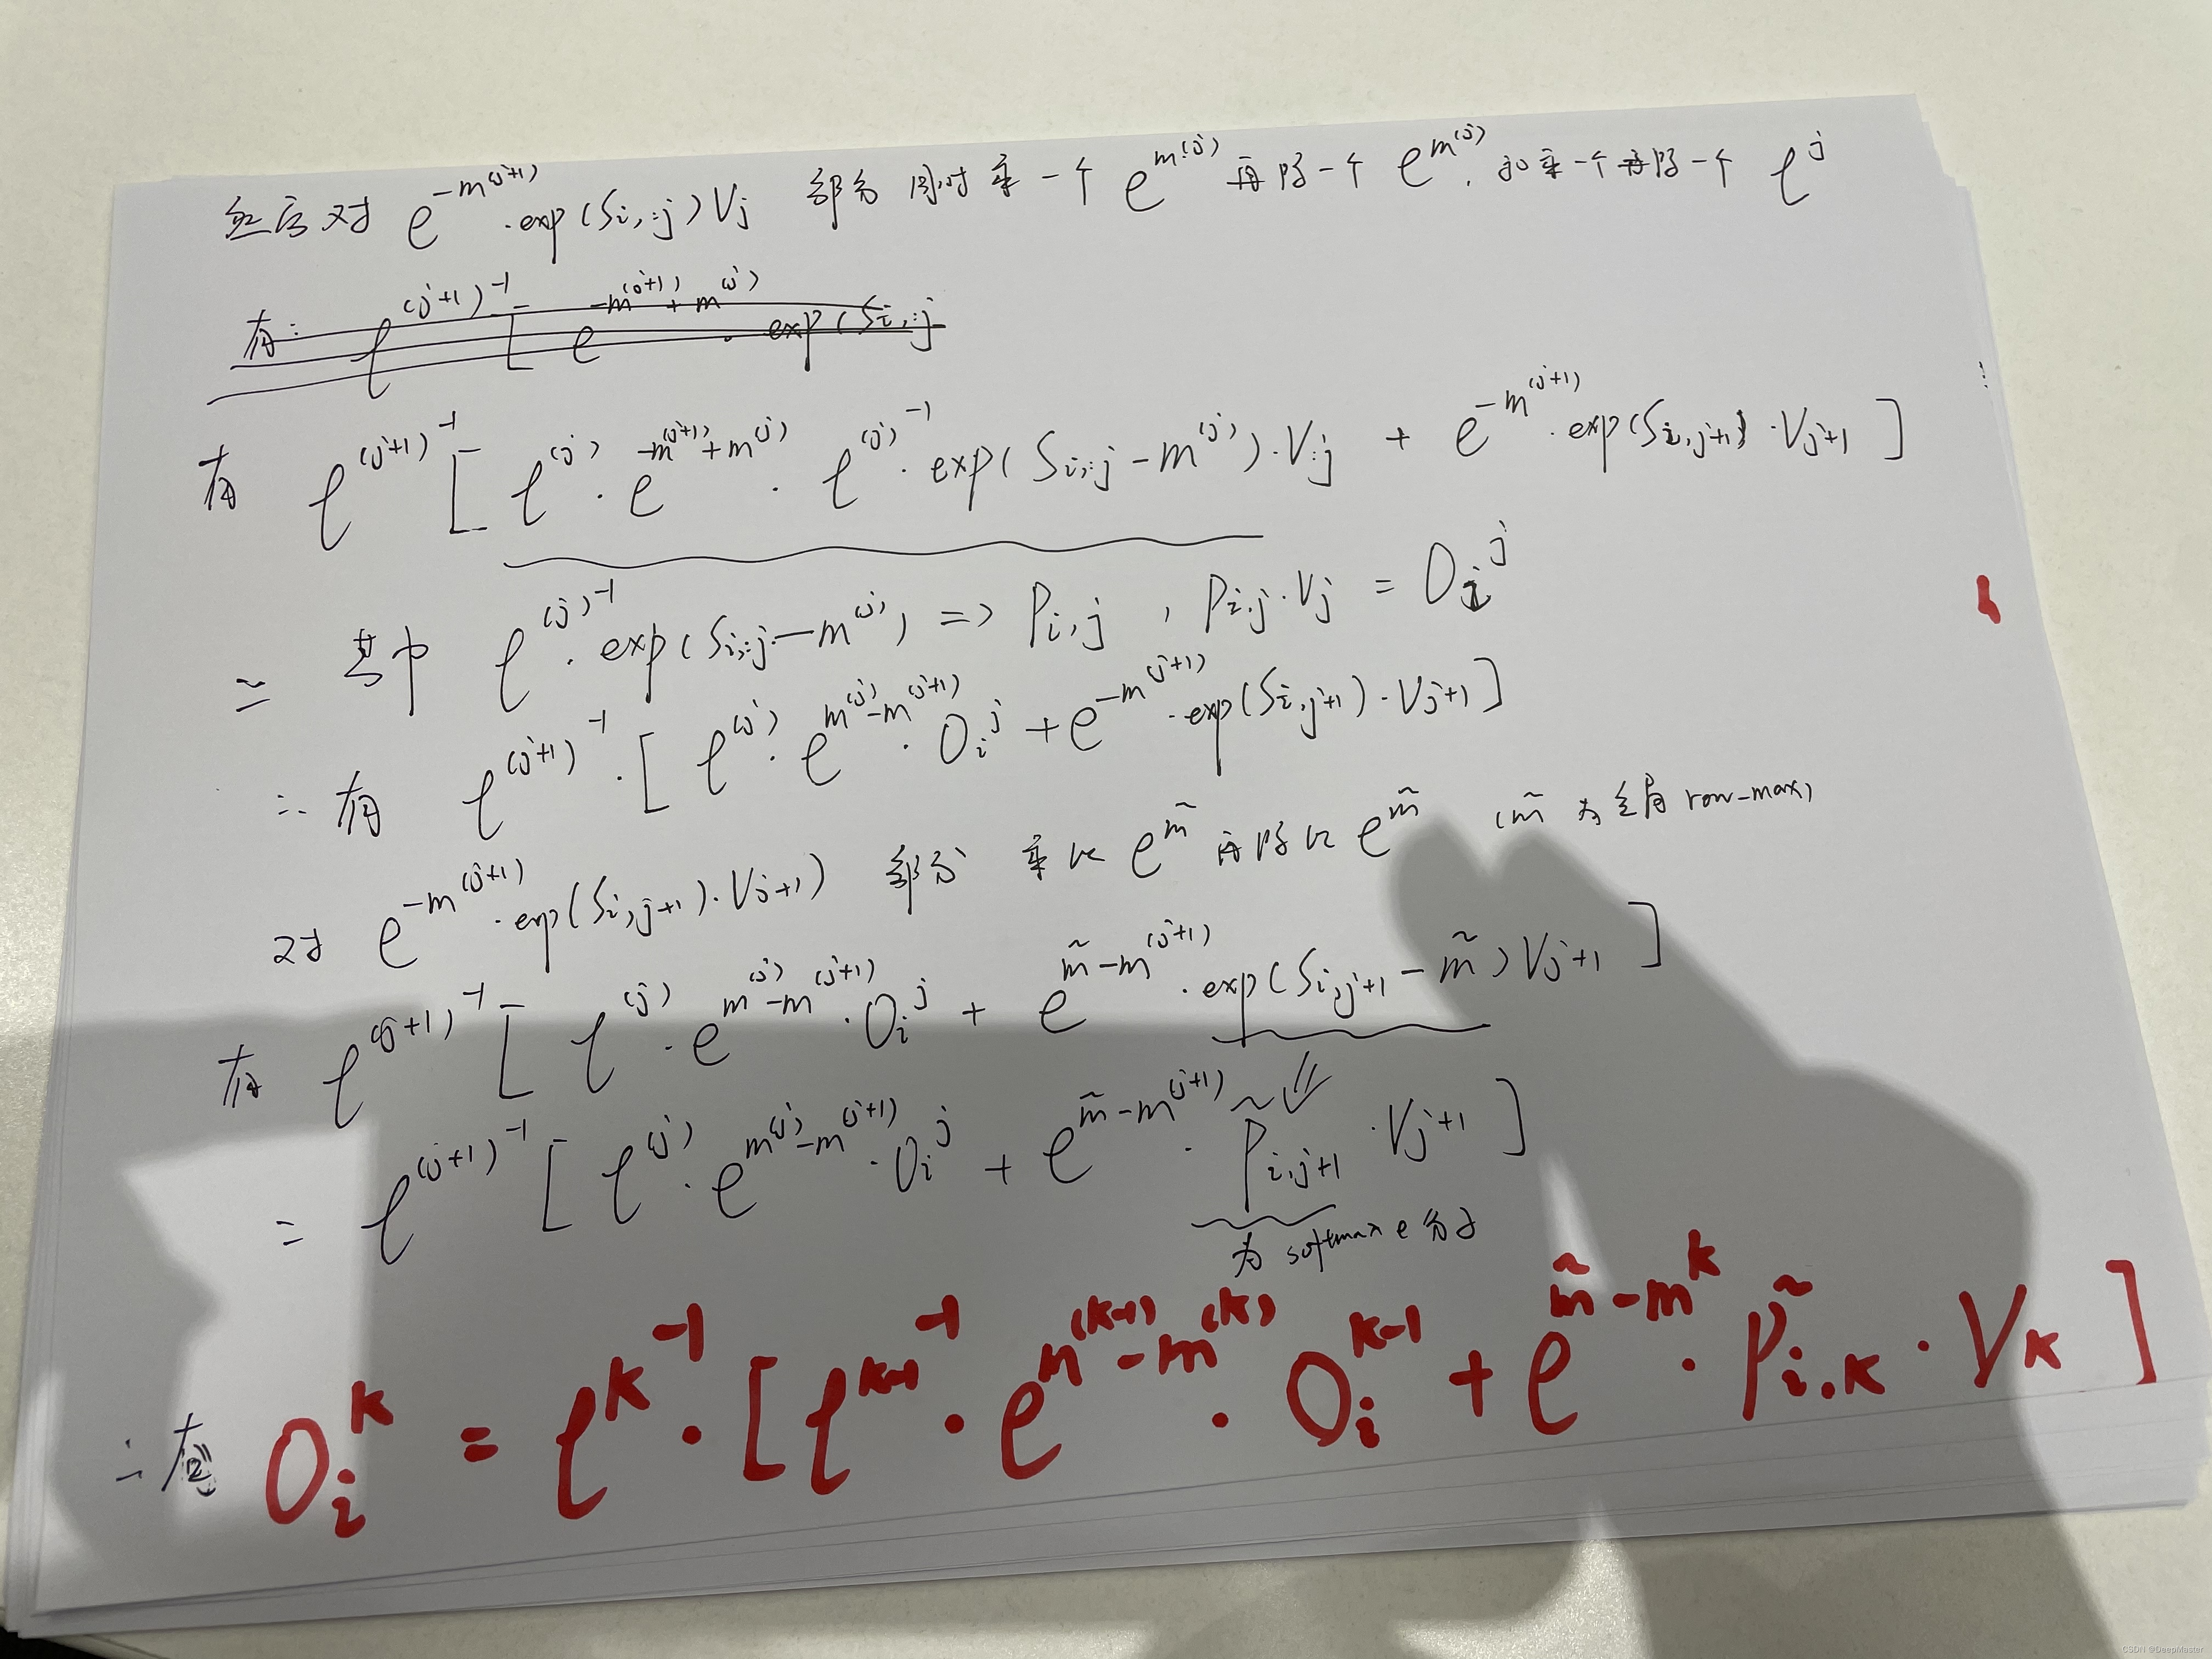 然后对 e^{-m^{(j+1)}} · exp(S_{i,:j}) V_j 部分 同时乘一个 e^{m^{(j)}} 再除一个 e^{m^{(j)}}, 和乘一个再除一个 ℓ^j
有: ℓ^{(j+1)^{-1}} [ e^{-m^{(j+1)}+m^{(j)}} · exp(S_{i,:j}
有 ℓ^{(j+1)^{-1}} [ ℓ^{(j)} · e^{-m^{(j+1)}+m^{(j)}} · ℓ^{(j)^{-1}} · exp(S_{i,:j} - m^{(j)}) · V_{:j} + e^{-m^{(j+1)}} · exp(S_{i,j+1}) · V_{j+1} ]
= 其中 ℓ^{(j)^{-1}} · exp(S_{i,:j} - m^{(j)}) => P_{i,j} , P_{i,j} · V_j = O_i^j
∴ 有 ℓ^{(j+1)^{-1}} · [ ℓ^{(j)} · e^{m^{(j)}-m^{(j+1)}} · O_i^j + e^{-m^{(j+1)}} · exp(S_{i,j+1}) · V_{j+1} ]
对 e^{-m^{(j+1)}} · exp(S_{i,j+1}) · V_{j+1}) 部分 乘以 e^{m̃} 再除以 e^{m̃} (m̃ 为全局 row-max)
有 ℓ^{(j+1)^{-1}} [ ℓ^{(j)} · e^{m^{(j)}-m^{(j+1)}} · O_i^j + e^{m̃-m^{(j+1)}} · exp(S_{i,j+1} - m̃) V_{j+1} ]
= ℓ^{(j+1)^{-1}} [ ℓ^{(j)} · e^{m^{(j)}-m^{(j+1)}} · O_i^j + e^{m̃-m^{(j+1)}} · P̃_{i,j+1} · V_{j+1} ]
为 softmax e 分子
∴ 有 O_i^k = ℓ^{k^{-1}} · [ ℓ^{k-1^{-1}} · e^{m^{(k-1)}-m^{(k)}} · O_i^{k-1} + e^{m̃-m^k} · P̃_{i,k} · V_k ]
CSDN @DeepMaster